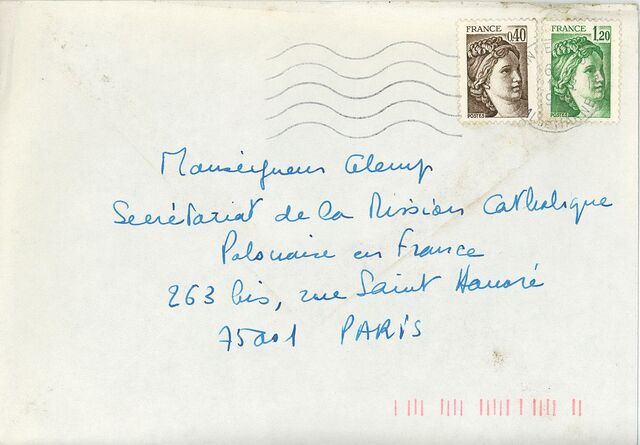 FRANCE 0,40
POSTES
FRANCE 1,20
POSTES
Monseigneur Glemp
Secrétariat de la Mission Catholique
Polonaise en France
263 bis, rue Saint Honoré
75001 PARIS